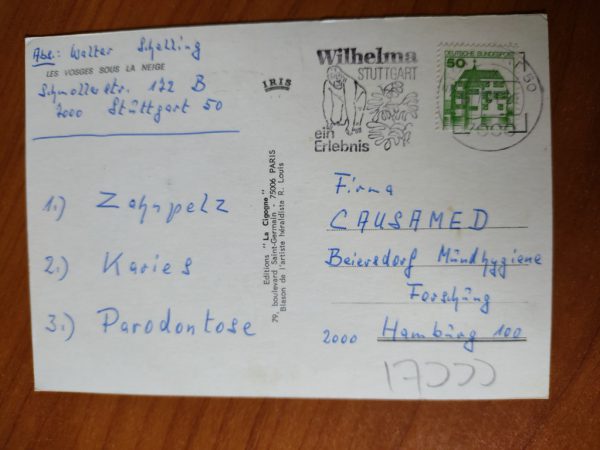 Abs.: Walter Schelling
LES VOSGES SOUS LA NEIGE
Schmollerstr. 122 B
7000 Stüttgart 50
1.) Zahnpelz
2.) Karies
3.) Parodontose
IRIS
Editions "La Cigogne"
79, boulevard Saint-Germain - 75006 PARIS
Blason de l'artiste héraldiste R. Louis
Wilhelma
STUTTGART
ein
Erlebnis
DEUTSCHE BUNDESPOST
50
50
Firma
CAUSAMED
Beiersdorf Mündhygiene
Forschüng
2000 Hambürg 100